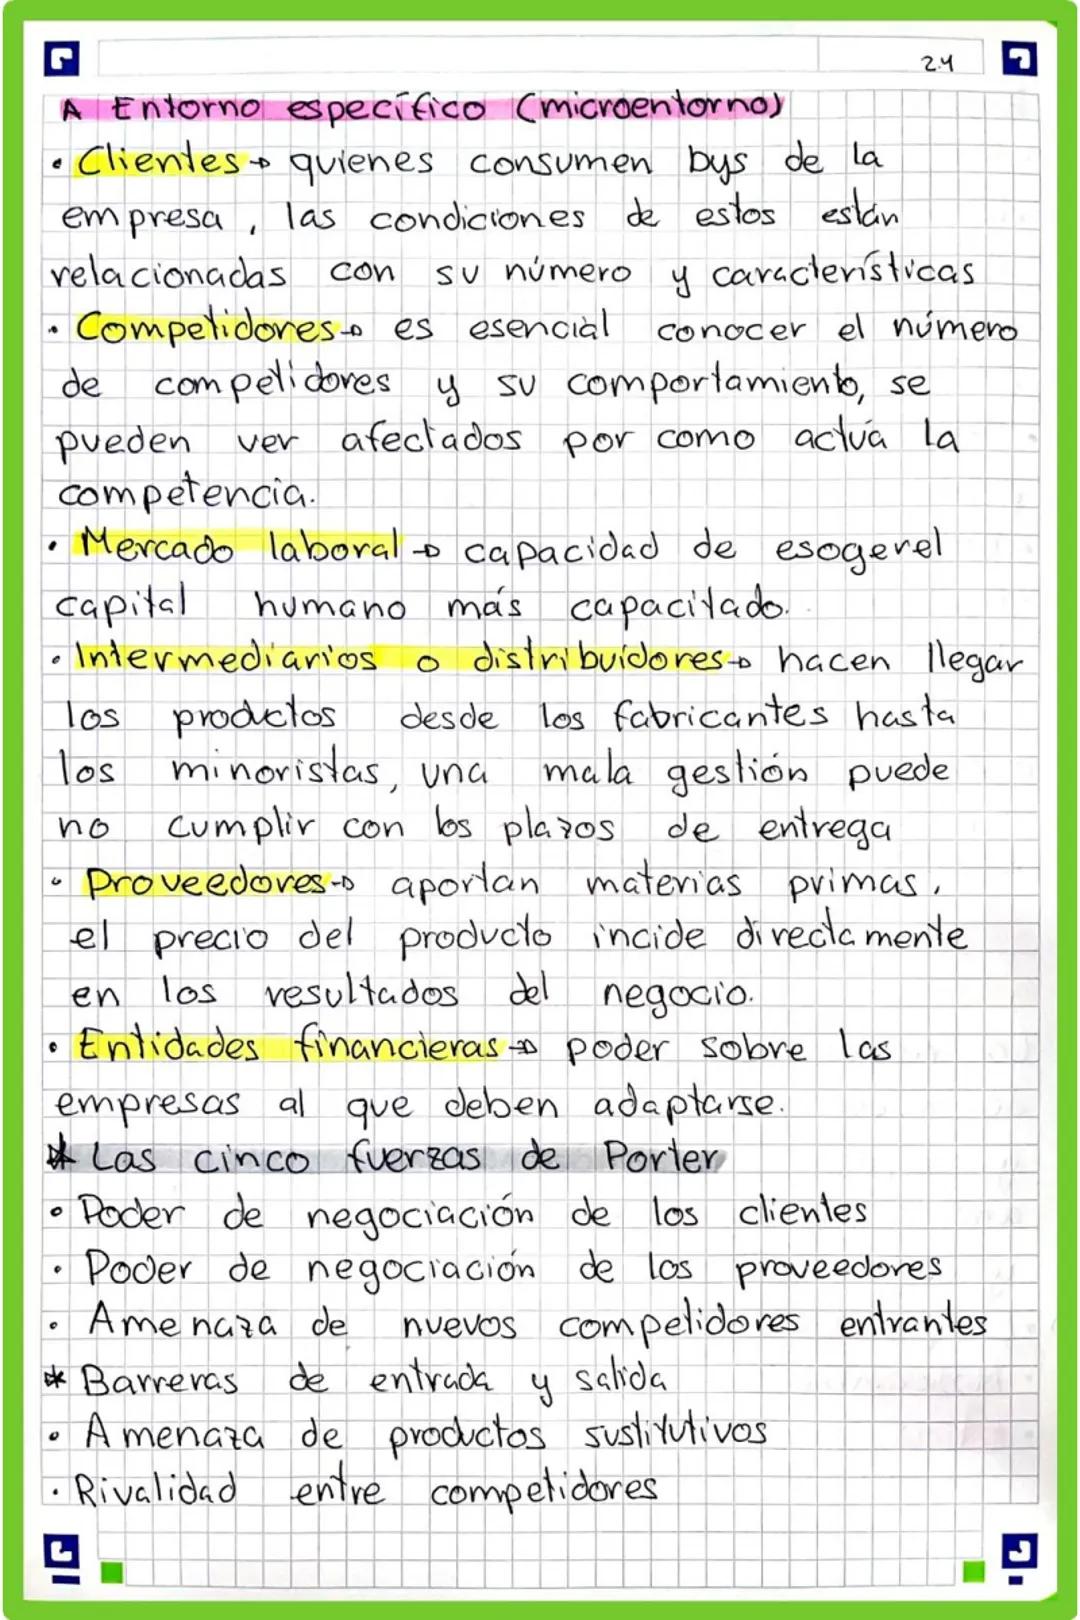 2.4
A Entorno específico (microentorno)
• Clientes → quienes consumen bys de la
empresa, las condiciones de estos están
relacionadas con su número y características
• Competidores → es esencial conocer el número
de competidores y su comportamiento, se
pueden ver afectados por como actúa la
competencia.
• Mercado laboral → capacidad de esogerel
capital humano más capacitado.
• Intermediarios o distribuidores → hacen llegar
los productos desde los fabricantes hasta
los minoristas, una mala gestión puede
no cumplir con los plazos de entrega
• Proveedores → aportan materias primas,
el precio del producto incide directamente
en los resultados del negocio.
• Entidades financieras → poder sobre las
empresas al que deben adaptarse.
* Las cinco fuerzas de Porter
• Poder de negociación de los clientes
• Poder de negociación de los proveedores
• Amenaza de nuevos competidores entrantes
* Barreras de entrada y salida
• Amenaza de productos sustitutivos
• Rivalidad entre competidores